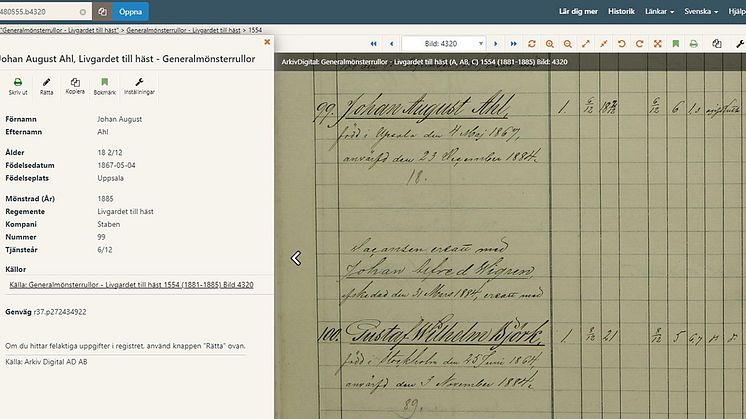 480555.b4320
Öppna
Lär dig mer Historik Länkar Svenska Hjälp
"Generalmönsterrullor - Livgardet till häst" > Generalmönsterrullor - Livgardet till häst > 1554
Bild: 4320
Johan August Ahl, Livgardet till häst - Generalmönsterrullor
ArkivDigital: Generalmönsterrullor - Livgardet till häst (A, AB, C) 1554 (1881-1885) Bild: 4320
Skriv ut Rätta Kopiera Bokmärk Inställningar
Förnamn Johan August
Efternamn Ahl
Ålder 18 2/12
Födelsedatum 1867-05-04
Födelseplats Uppsala
Mönstrad (År) 1885
Regemente Livgardet till häst
Kompani Staben
Nummer 99
Tjänsteår 6/12
Källor
Källa: Generalmönsterrullor - Livgardet till häst 1554 (1881-1885) Bild 4320
Genväg r37.p272434922
Om du hittar felaktiga uppgifter i registret, använd knappen "Rätta" ovan.
Källa: Arkiv Digital AD AB
99. Johan August Ahl, 1. 6/12 18 2/12 6/12 6 1,3
född i Upsala den 4 Maj 1867,
anvärfd den 23 December 1884.
18.
Vacansen ersatt med
Johan Alfred Wigren
afskedad den 31 Mars 1884, ersatt med
100. Gustaf Wilhelm Björk, 1. 8/12 21 8/12 5 6,7
född i Stockholm den 25 Juni 1864
anvärfd den 3 November 1884.
89.